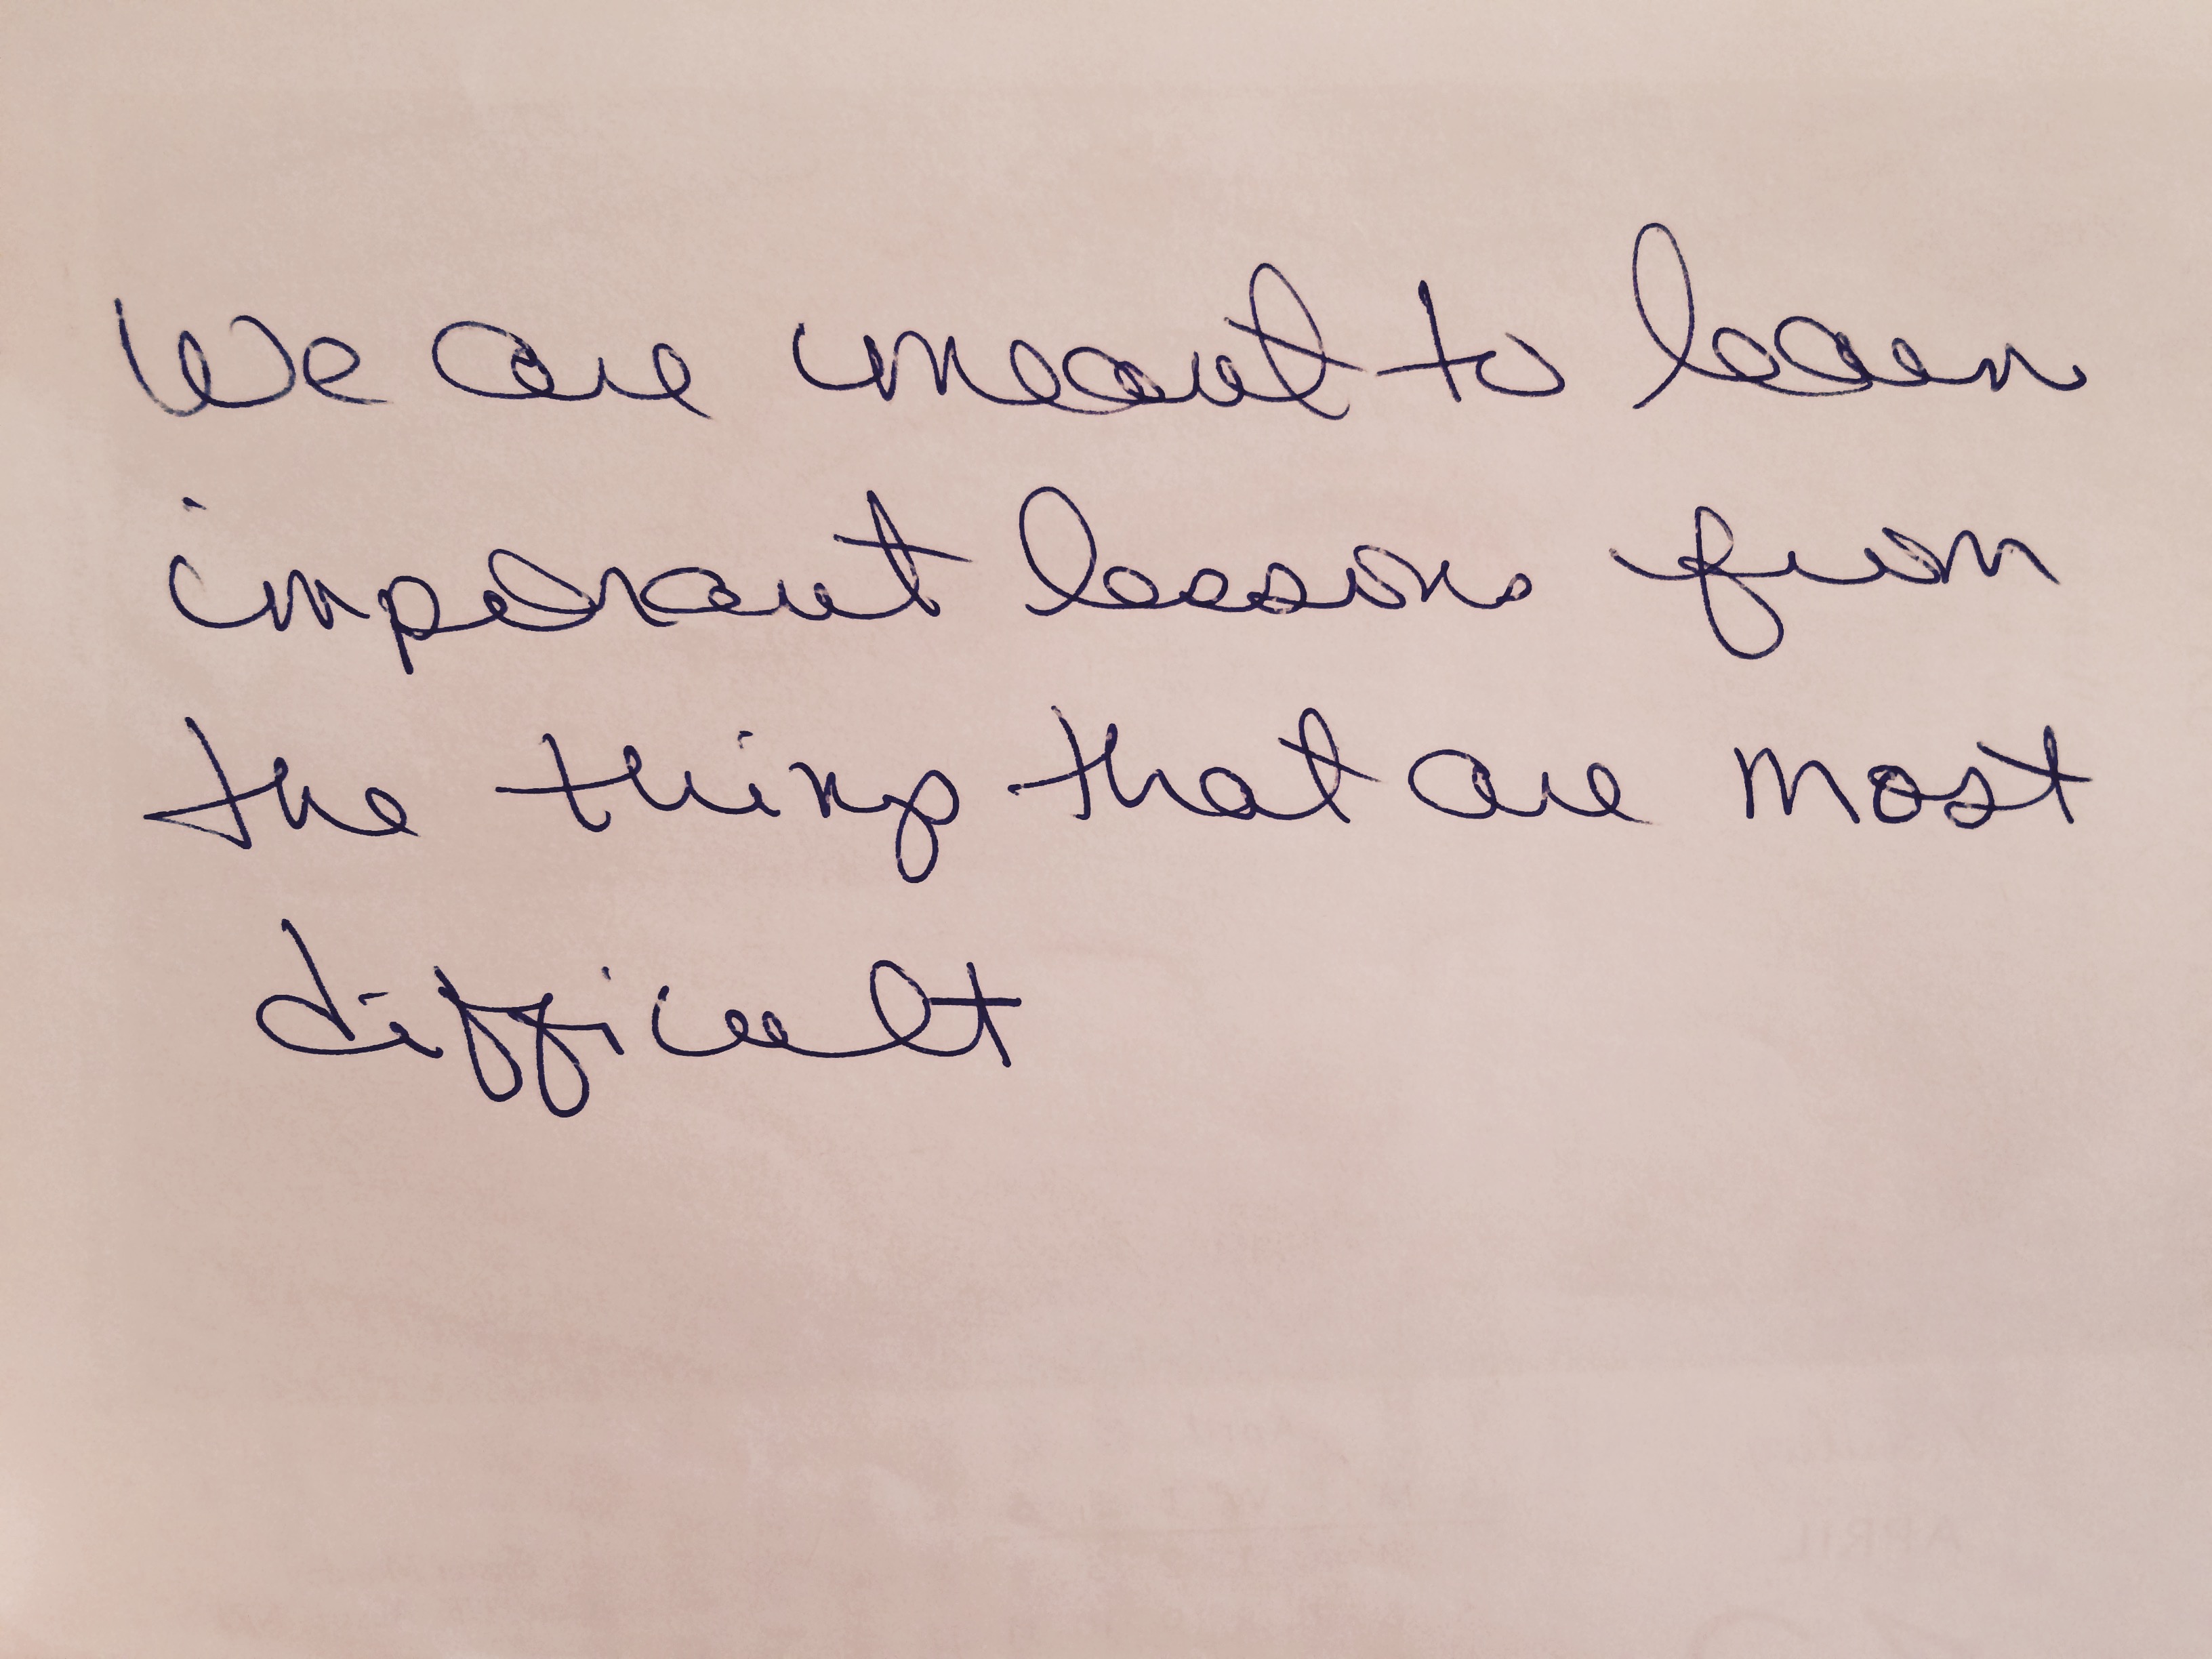 We are meant to learn
important lessons from
the things that are most
difficult
APRIL